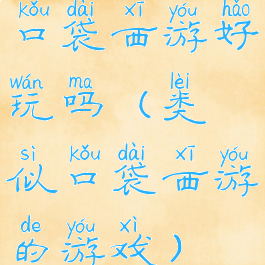 kǒu dài xī yóu hǎo
口袋西游好
wán ma lèi
玩吗（类
sì kǒu dài xī yóu
似口袋西游
de yóu xì
的游戏）